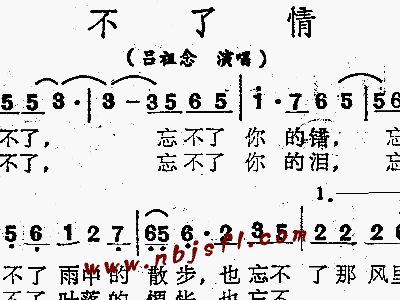 不了情
（吕祖念 演唱）
5 5 3· | 3 – 3 5 6 5 | 1· 7 6 5 | 5 6
不了， 忘不了 你 的错， 忘
不了， 忘不了 你 的泪， 忘
1.
5 6 1 2 7 | 6 5 6· 2 3 5 | 2 2 2 6
不了 雨中的 散步，也 忘不 了那 风里
www.nbjsfl.com